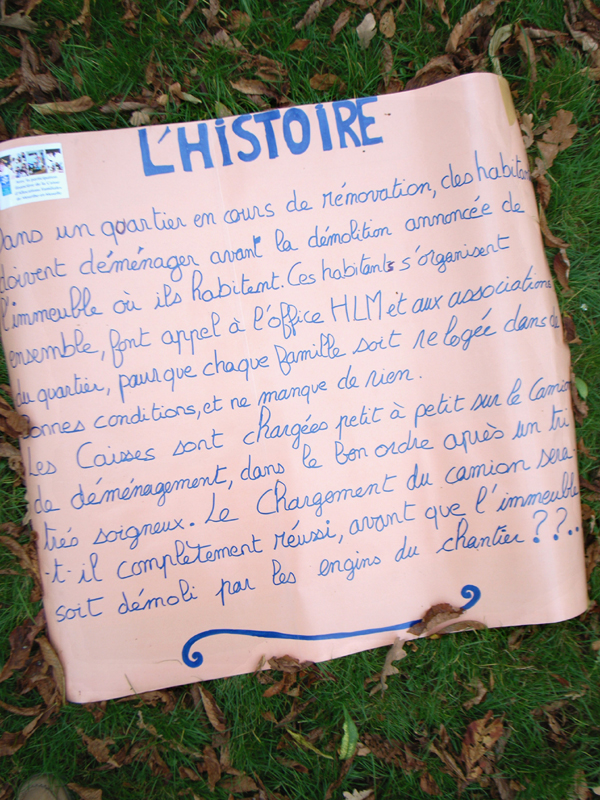 L'HISTOIRE
Dans un quartier en cours de rénovation, des habitants
doivent déménager avant la démolition annoncée de
l'immeuble où ils habitent. Ces habitants s'organisent
ensemble, font appel à l'office HLM et aux associations
du quartier, pour que chaque famille soit relogée dans de
bonnes conditions, et ne manque de rien.
Les Caisses sont chargées petit à petit sur le camion
de déménagement, dans le bon ordre après un tri
très soigneux. Le Chargement du camion sera-
-t-il complètement réussi, avant que l'immeuble
soit démoli par les engins du chantier ??..